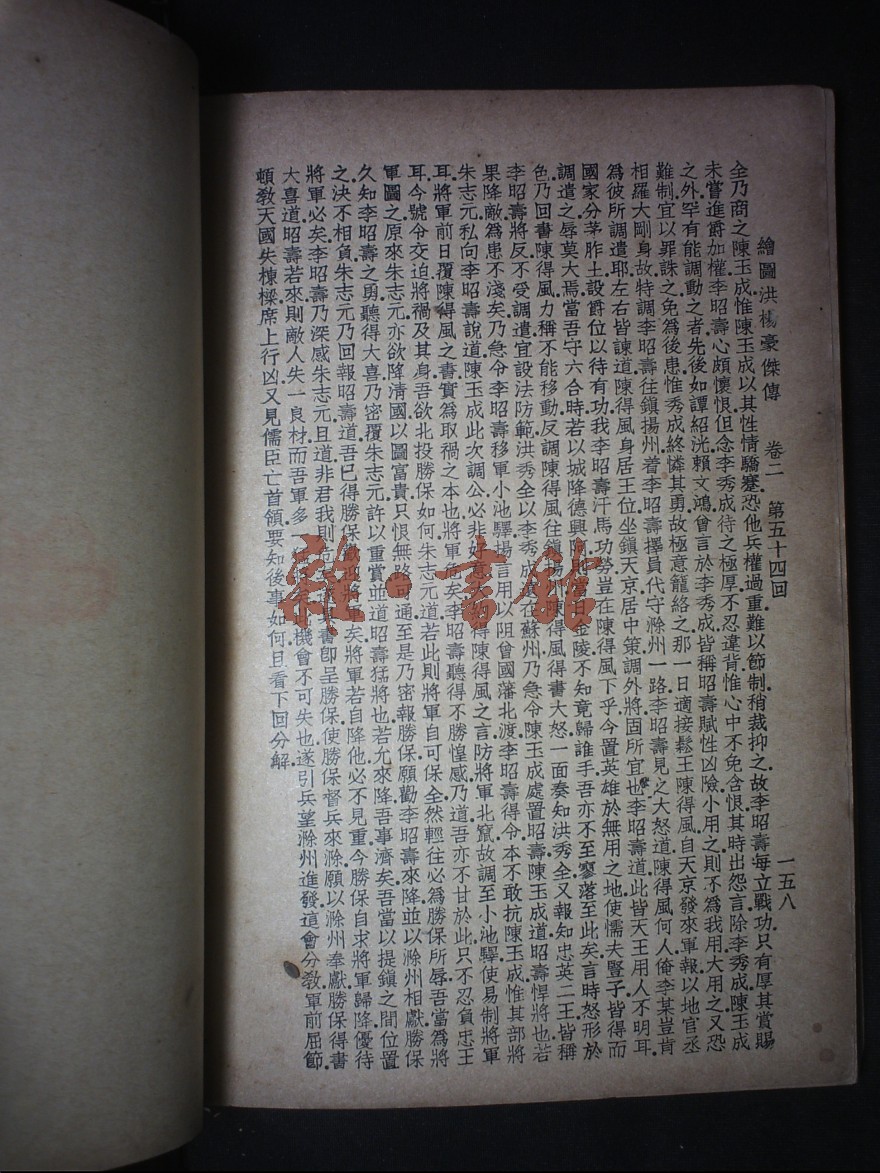 繪圖洪楊豪傑傳　卷二　第五十四回　一五八
全乃商之陳玉成惟陳玉成以其性情驕蹇恐他兵權過重難以節制稍裁抑之故李昭壽每立戰功只有厚其賞賜
未嘗進爵加權李昭壽心頗懷恨但念李秀成待之極厚不忍違背惟心中不免含恨其時出怨言除李秀成陳玉成
之外罕有能調動之者先後如譚紹洸賴文鴻曾言於李秀成皆稱昭壽賦性凶險小用之則不為我用大用之又恐
難制宜以罪誅之免為後患惟秀成終憐其勇故極意籠絡之那一日適接鬆王陳得風自天京發來軍報以地官丞
相羅大剛身故特調李昭壽往鎮揚州着李昭壽擇員代守滁州一路李昭壽見之大怒道陳得風何人俺李某豈肯
為彼所調遣耶左右皆諫道陳得風身居王位坐鎮天京居中策調外將固所宜也李昭壽道此皆天王用人不明耳
國家分茅胙土設爵位以待有功我李昭壽汗馬功勞豈在陳得風下乎今置英雄於無用之地使懦夫豎子皆得而
調遣之辱莫大焉當吾守六合時若以城降德興阿則當日金陵不知竟歸誰手吾亦不至寥落至此矣言時怒形於
色乃回書陳得風力稱不能移動反調陳得風往鎮揚陳得風得書大怒一面奏知洪秀全又報知忠英二王皆稱
李昭壽將反不受調遣宜設法防範洪秀全以李秀成遠在蘇州乃急令陳玉成處置昭壽陳玉成道昭壽悍將也若
果降敵為患不淺矣乃急令李昭壽移軍小池驛揚言用以阻曾國藩北渡李昭壽得令本不敢抗陳玉成惟其部將
朱志元私向李昭壽說道陳玉成此次調公必非好意大約得陳得風之言防將軍北竄故調至小池驛使易制將軍
耳將軍前日覆陳得風之書實為取禍之本也將軍危矣李昭壽聽得不勝惶感乃道吾亦不甘於此只不忍負忠王
耳今號令交迫將禍及其身吾欲北投勝保如何朱志元道若此則將軍自可保全然輕往必為勝保所辱吾當為將
軍圖之原來朱志元亦欲降清國以圖富貴只恨無路可通至是乃密報勝保願勸李昭壽來降並以滁州相獻勝保
久知李昭壽之勇聽得大喜乃密覆朱志元許以重賞並道昭壽猛將也若允來降吾事濟矣吾當以提鎮之間位置
之決不相負朱志元乃回報昭壽道吾已得勝保歡迎將軍矣將軍若自降他必不見重今勝保自求將軍歸降優待
將軍必矣李昭壽乃深感朱志元且道非君我則危矣書即呈勝保使勝保督兵來滁願以滁州奉獻勝保得書
大喜道昭壽若來則敵人失一良材而吾軍多一機會不可失也遂引兵望滁州進發這會分教軍前屈節
頓教天國失棟樑席上行凶又見儒臣亡首領要知後事如何且看下回分解
雜·書館